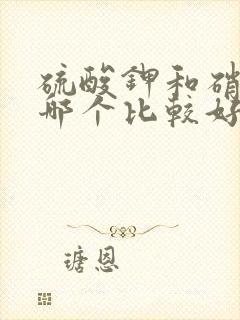 硫酸钾和硝
哪个比较好
瑭恩